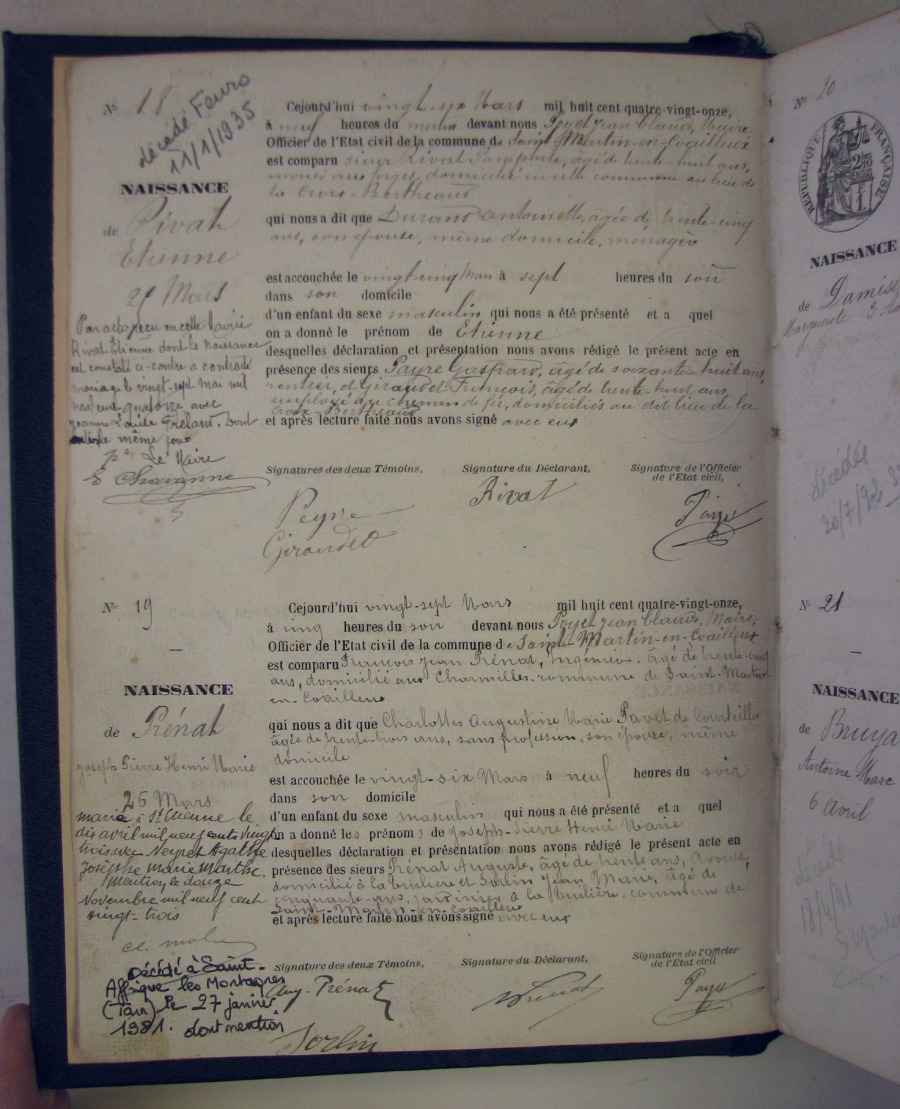 N° 18
décédé Feurs
11/1/1935
NAISSANCE
de Rivat
Etienne
25 Mars
Par acte reçu en cette Mairie
Rivat Etienne dont la naissance
est constatée ci-contre a contracté
mariage le vingt-sept mai mil
neuf cent quatorze avec
Jeanne Louise Frélant. Dont
le même jour
Le Maire
E Chavanne
Cejourd'hui vingt-six Mars mil huit cent quatre-vingt-onze,
à neuf heures du matin devant nous Poyet Jean Claude, Maire,
Officier de l'Etat civil de la commune de Saint-Martin-en-Coailleux
est comparu sieur Rivat Pamphile, âgé de trente-huit ans,
aux forges, domicilié en cette commune au lieu de
la Croix-Bertheaud
qui nous a dit que Durand Antoinette, âgée de trente-cinq
ans, son épouse, même domicile, ménagère
est accouchée le vingt-cinq Mars à sept heures du soir
dans son domicile
d'un enfant du sexe masculin qui nous a été présenté et a quel
on a donné le prénom de Etienne
desquelles déclaration et présentation nous avons rédigé le présent acte en
présence des sieurs Peyre Gaspard, âgé de soixante-huit ans,
rentier, et Giraudet François, âgé de trente huit ans
employé au chemin de fer, domiciliés au dit lieu de la
Croix-Bertheaud
et après lecture faite nous avons signé avec eux
Signatures des deux Témoins,
Signature du Déclarant,
Signature de l'Officier
de l'Etat civil,
Peyre
Giraudet
Rivat
Poyet
N° 19
NAISSANCE
de Prénat
Joseph Pierre Henri Marie
26 Mars
marié à St Etienne le
dix avril mil neuf cent vingt
trois avec Neyret Agathe
Josèphe Marie Marthe
Mention le douze
Novembre mil neuf cent
vingt-trois
Décédé à Saint-
Affrique les Montagnes
(Tarn) le 27 janvier
1981. dont mention
Cejourd'hui vingt-sept Mars mil huit cent quatre-vingt-onze,
à cinq heures du soir devant nous Poyet Jean Claude, Maire,
Officier de l'Etat civil de la commune de Saint-Martin-en-Coailleux
est comparu François Jean Prénat, Ingénieur, âgé de trente-cinq
ans, domicilié aux Charmilles, commune de Saint-Martin-
en-Coailleux
qui nous a dit que Charlotte Augustine Marie Pavet de Courteille
âgée de trente-trois ans, sans profession, son épouse, même
domicile
est accouchée le vingt-six Mars à neuf heures du soir
dans son domicile
d'un enfant du sexe masculin qui nous a été présenté et a quel
on a donné les prénoms de Joseph-Pierre Henri Marie
desquelles déclaration et présentation nous avons rédigé le présent acte en
présence des sieurs Prénat Auguste, âgé de trente ans, avocat,
domicilié à la et Sorlin Jean Marie, âgé de
cinquante ans, jardinier à la commune de
Saint-Martin-en-Coailleux
et après lecture faite nous avons signé avec eux
Signature des deux Témoins,
Signature du Déclarant,
Signature de l'Officier
de l'Etat civil
Aug. Prénat
Sorlin
Prénat
Poyet
N° 20
RÉPUBLIQUE FRANÇAISE
NAISSANCE
de Damise
Marguerite 3
décédée
20/7/92
N° 21
NAISSANCE
de Bruya
Antoine Marc
6 Avril
décédé
18/4/41